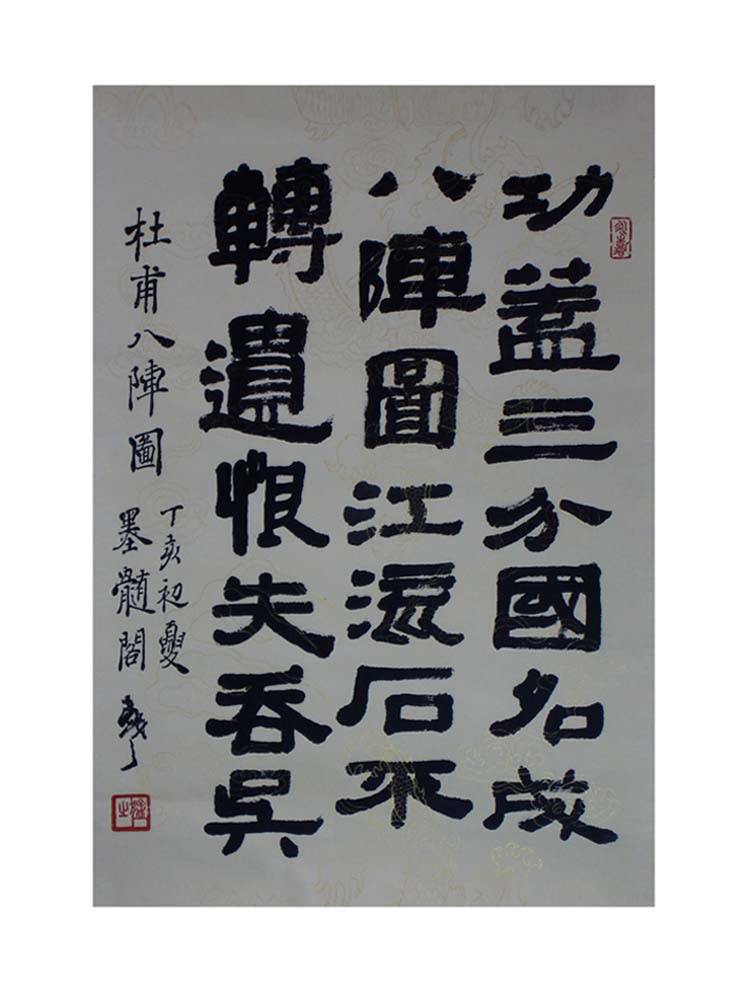 功蓋三分國名成
八陣圖江流石不
轉遺恨失吞吳
杜甫八陣圖
丁亥初夏
墨髓閣